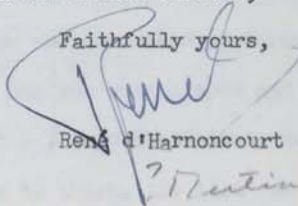 Faithfully yours,
René
René d'Harnoncourt